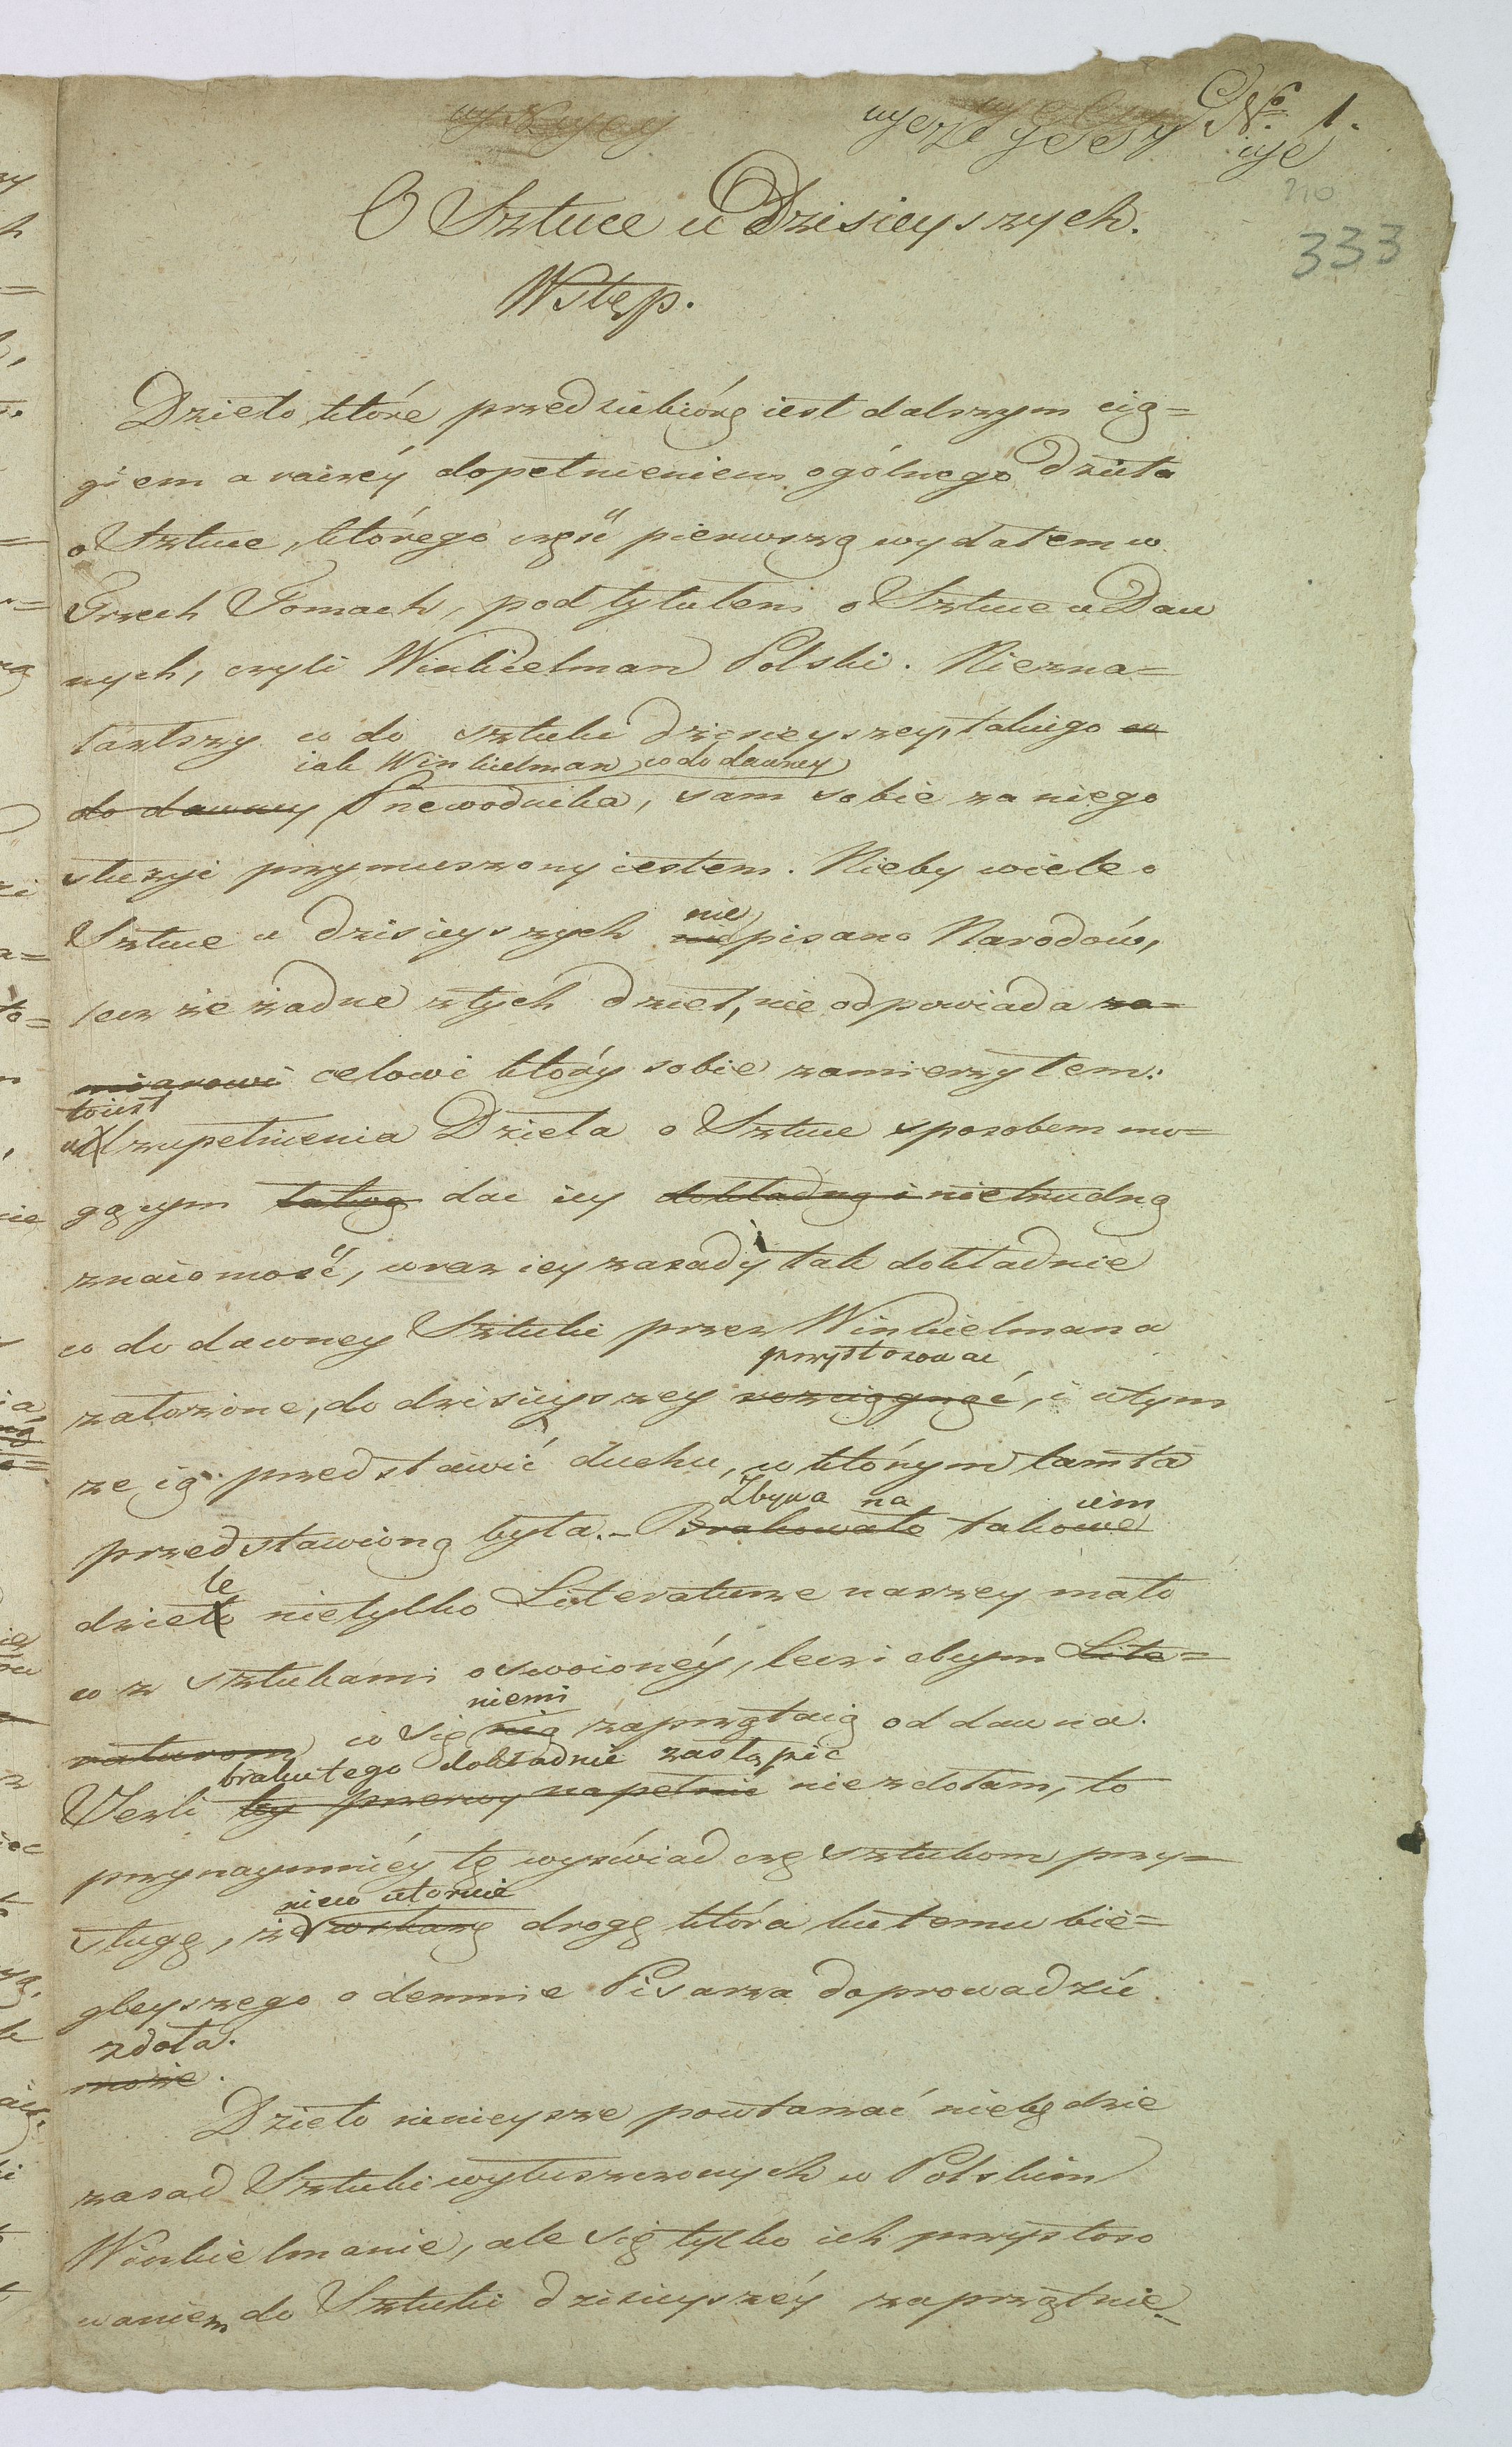 No 1.
333
O Sztuce u Dzisieyszych.
Wstęp.
Dzieło które przedsiębiorę iest dalszym cią=
giem a raizéy dopełnieniem ogólnego dzieła
o Sztuce, którego część pierwszą wydałem w
Trzech Tomach, pod tytułem o Sztuce u Daw
nych, czyli Winkielman Polski. Niezna=
lazłszy co do sztuki dzisieyszey, takiego co
iak Winkielman co do dawney
do dawney Przewodnika, sam sobie za niego
służyć przymuszony iestem. Nieby wiele o
nie
Sztuce u dzisieyszych nie pisano Narodów,
lecz że żadne z tych dzieł, nie odpowiada za=
miarowi celowi który sobie zamierzyłem:
to iest
uzupełnienia Dzieła o Sztuce sposobem mo=
gącym taką dać iey dokładną i nietrudną
znaiomość, wraz iey zasady tak dokładnie
co do dawney Sztuki przez Winkielmana
przystosować
założone, do dzisieyszey rozciągnąć, i w tym
że ią przedstawić duchu, w którym tamta
Zbywa na iem
przedstawioną była. – Brakowało takowe
le
dzieło nietylko Literaturze naszey mało
co z sztukami oswoionéy, lecz i obcym Lite=
niemi
raturom co się nią zaprzątaią oddawna.
braku tego dokładnie zastąpić
Jeżli tey przerwy napełnić niezdołam, to
przynaymniéy tę wyświadczę sztukom przy=
nieco utoruię
sługę, że wskażę drogę która ku temu bie=
gleyszego odemnie Pisarza doprowadzić
zdoła.
może.
Dzieło ninieysze powtarzać niebędzie
zasad Sztuki wyłuszczonych w Polskim
Winkielmanie, ale się tylko ich przystoso
waniem do Sztuki dzisieyszéy zaprzątnie.